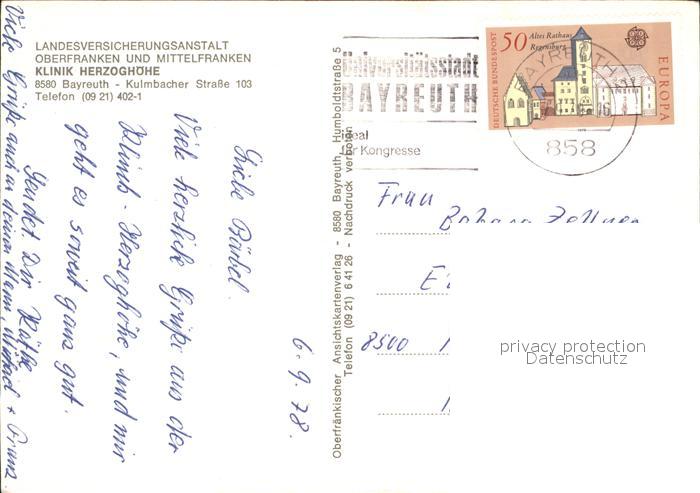 LANDESVERSICHERUNGSANSTALT
OBERFRANKEN UND MITTELFRANKEN
KLINIK HERZOGHÖHE
8580 Bayreuth - Kulmbacher Straße 103
Telefon (09 21) 402-1
6.9.78.
Liebe Bärbel.
Viele herzliche Grüße aus der
Klinik - Herzoghöhe, und mir
geht es soweit ganz gut.
Sendet Dir Käthe
Viele Grüße auch an deinen Mann, Michael + Franz
Oberfränkischer Ansichtskartenverlag - 8580 Bayreuth, Humboldtstraße 5
Telefon (09 21) 6 41 26 - Nachdruck verboten
Universitätsstadt
BAYREUTH
ideal
für Kongresse
DEUTSCHE BUNDESPOST
50 Altes Rathaus
Regensburg
EUROPA
BAYREUTH
858
Frau
8500
privacy protection
Datenschutz